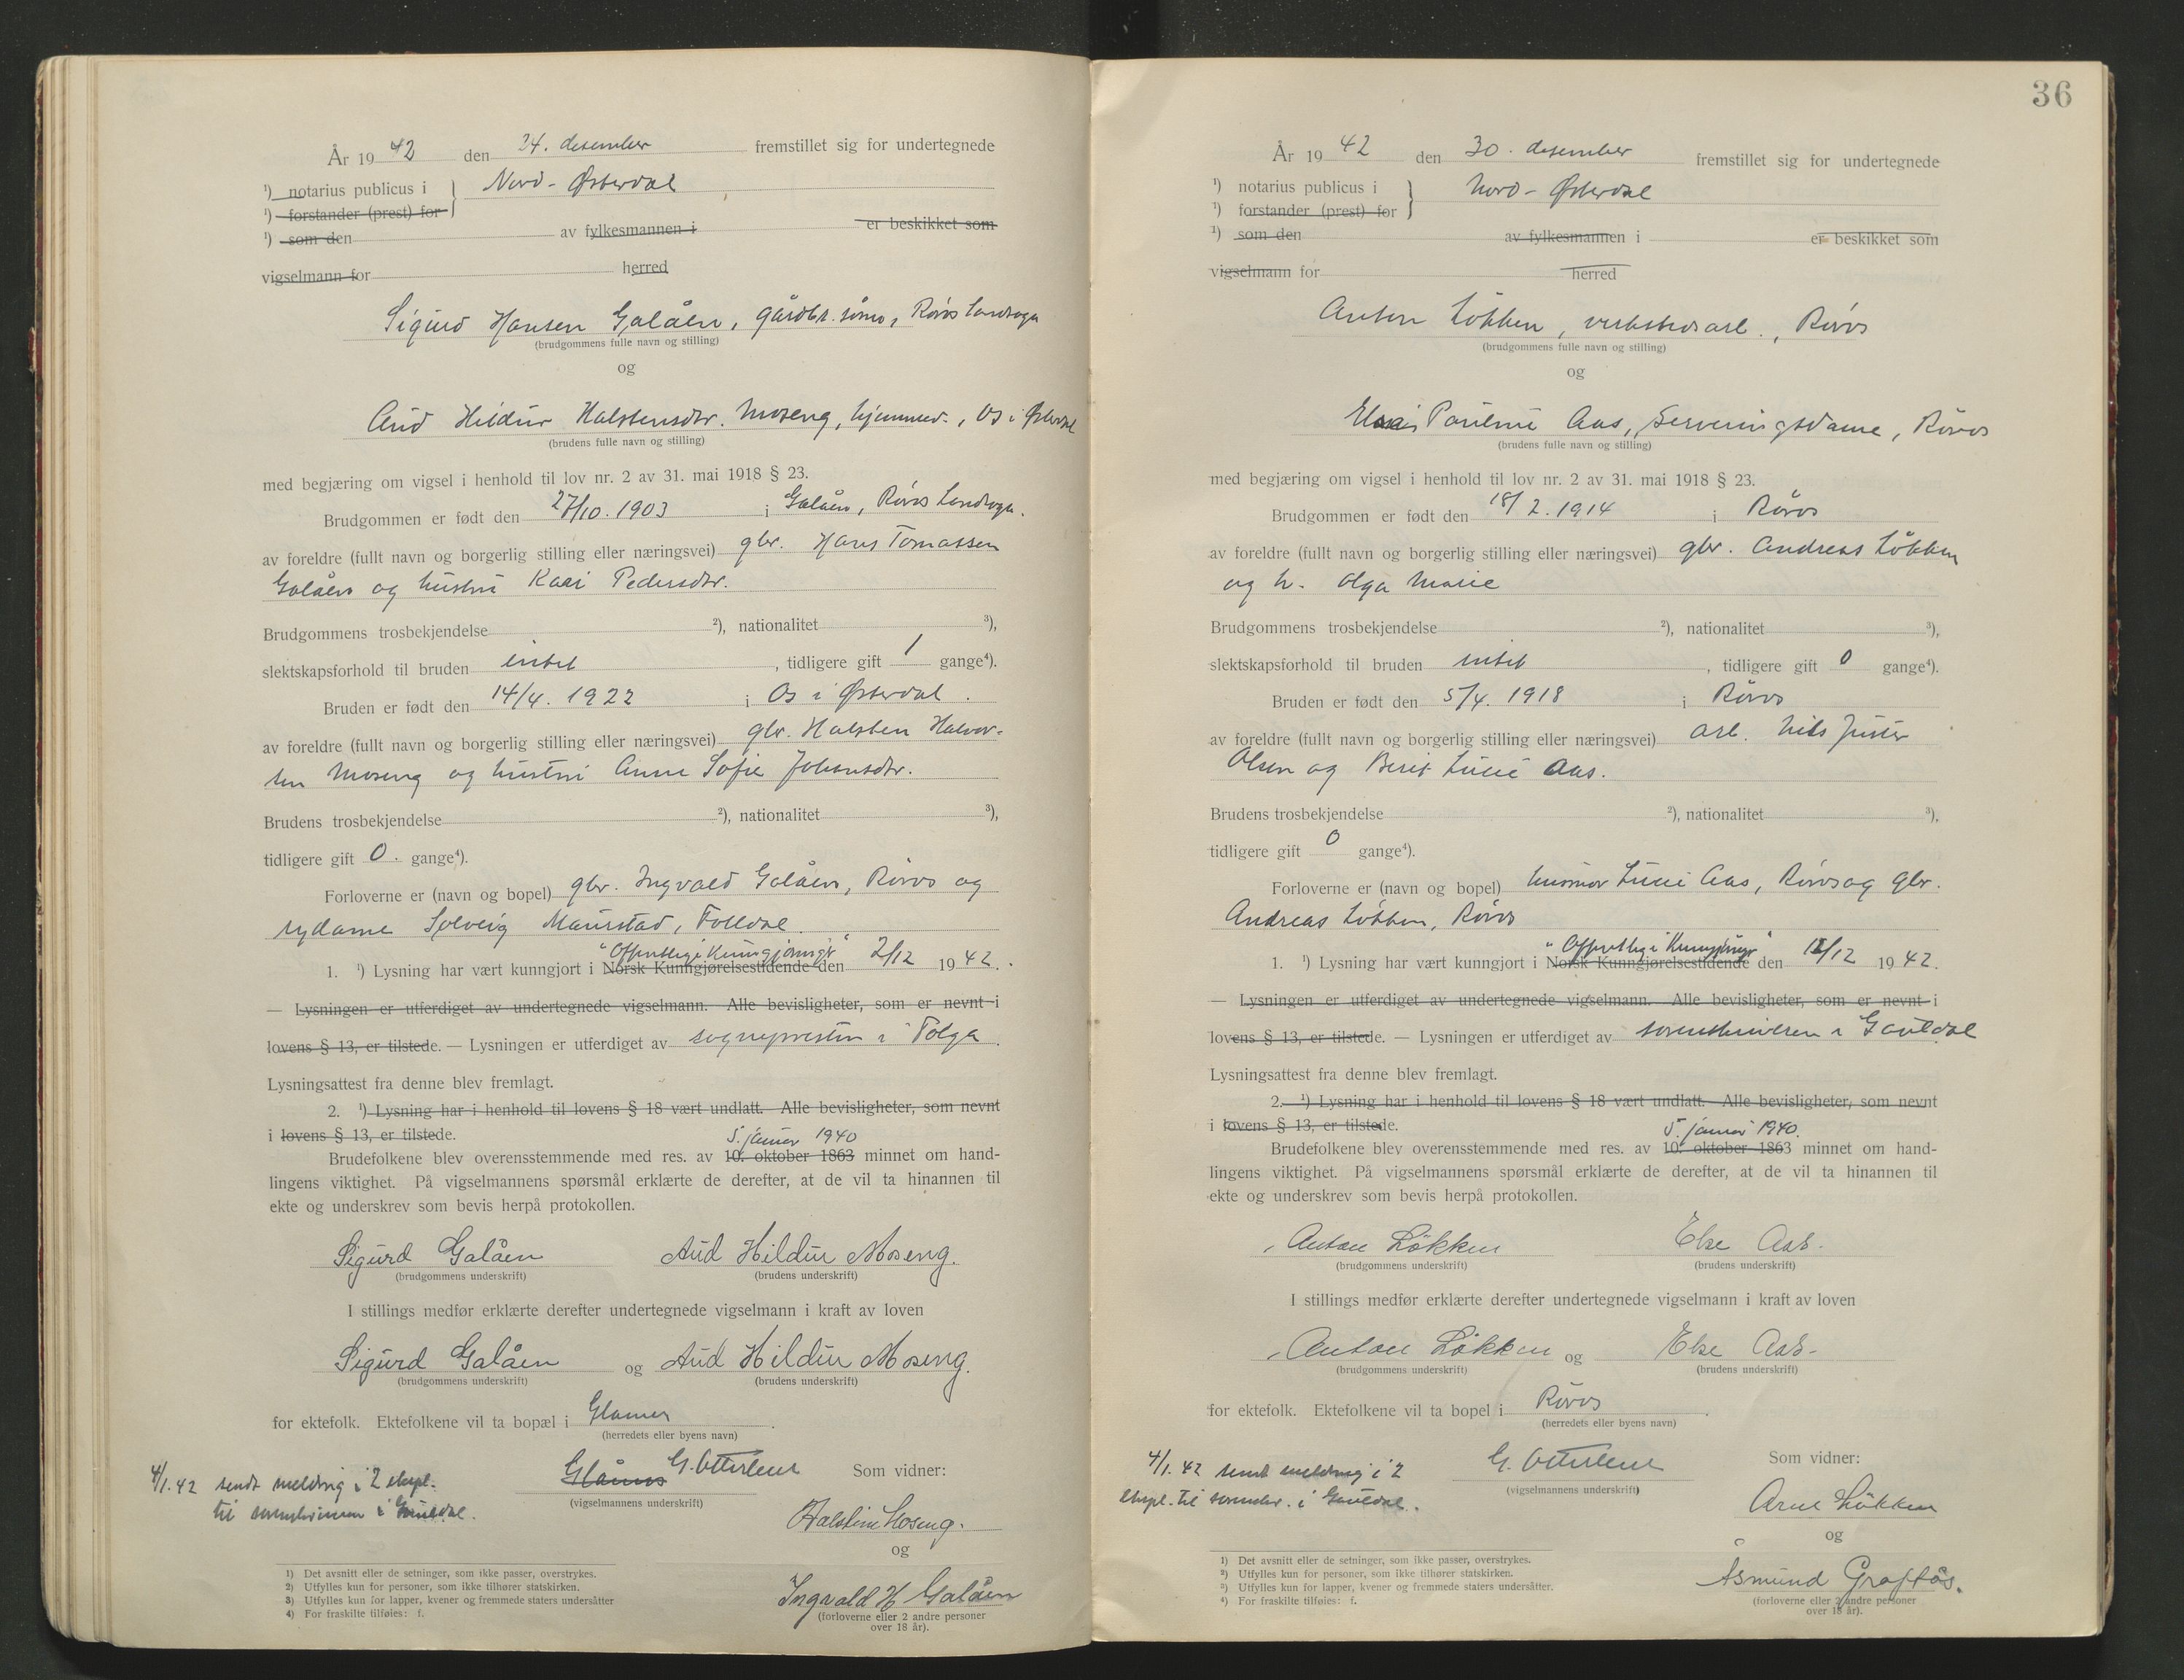 År 19 42 den 24. desember fremstillet sig for undertegnede
¹) notarius publicus i } Nord-Østerdal
¹) forstander (prest) for
¹) som den av fylkesmannen i er beskikket som
vigselmann for herred
Sigurd Hansen Galåen, gårdbr. sønn, Røros Landsogn
(brudgommens fulle navn og stilling)
og
Aud Hildur Halstensdtr. Moseng, hjemmev., Os i Østerdal
(brudens fulle navn og stilling)
med begjæring om vigsel i henhold til lov nr. 2 av 31. mai 1918 § 23.
Brudgommen er født den 27/10. 1903 i Galåen, Røros Landsogn.
av foreldre (fullt navn og borgerlig stilling eller næringsvei) gbr. Hans Tomassen
Galåen og hustru Kari Pedersdtr.
Brudgommens trosbekjendelse ²), nationalitet ³),
slektskapsforhold til bruden intet, tidligere gift 1 gange⁴).
Bruden er født den 14/4. 1922 i Os i Østerdal.
av foreldre (fullt navn og borgerlig stilling eller næringsvei) gbr. Halsten Halvor-
sen Moseng og hustru Anne Sofie Johansdtr.
Brudens trosbekjendelse ²), nationalitet ³),
tidligere gift 0. gange⁴).
Forloverne er (navn og bopel) gbr. Ingvald Galåen, Røros og
sydame Solveig Maurstad, Folldal.
"Offentlige Kunngjøringer"
1. ¹) Lysning har vært kunngjort i Norsk Kunngjørelsestidende den 2/12 19 42.
— Lysningen er utferdiget av undertegnede vigselmann. Alle bevisligheter, som er nevnt i
lovens § 13, er tilstede. — Lysningen er utferdiget av sognepresten i Tolga.
Lysningsattest fra denne blev fremlagt.
2. ¹) Lysning har i henhold til lovens § 18 vært undlatt. Alle bevisligheter, som nevnt
i lovens § 13, er tilstede.
5. januar 1940
Brudefolkene blev overensstemmende med res. av 10. oktober 1863 minnet om hand-
lingens viktighet. På vigselmannens spørsmål erklærte de derefter, at de vil ta hinannen til
ekte og underskrev som bevis herpå protokollen.
Sigurd Galåen Aud Hildur Moseng.
(brudgommens underskrift) (brudens underskrift)
I stillings medfør erklærte derefter undertegnede vigselmann i kraft av loven
Sigurd Galåen og Aud Hildur Moseng.
(brudgommens underskrift) (brudens underskrift)
for ektefolk. Ektefolkene vil ta bopæl i Glåmos.
(herredets eller byens navn)
4/1.42 sendt melding i 2 ekspl. Glåmos G. Otterlein Som vidner:
til sorenskriveren i Gauldal. (vigselmannens underskrift)
Halstein Moseng.
og
Ingvald H Galåen
(forloverne eller 2 andre personer
over 18 år).
1) Det avsnitt eller de setninger, som ikke passer, overstrykes.
2) Utfylles kun for personer, som ikke tilhører statskirken.
3) Utfylles kun for lapper, kvener og fremmede staters undersåtter
4) For fraskilte tilføies: f.
36
År 19 42 den 30. desember fremstillet sig for undertegnede
¹) notarius publicus i } Nord-Østerdal
¹) forstander (prest) for
¹) som den av fylkesmannen i er beskikket som
vigselmann for herred
Anton Løkken, verkstedsarb., Røros
(brudgommens fulle navn og stilling)
og
Else Pauline Aas, Serveringsdame, Røros
(brudens fulle navn og stilling)
med begjæring om vigsel i henhold til lov nr. 2 av 31. mai 1918 § 23.
Brudgommen er født den 18/2. 1914 i Røros
av foreldre (fullt navn og borgerlig stilling eller næringsvei) gbr. Andreas Løkken
og h. Olga Marie
Brudgommens trosbekjendelse ²), nationalitet ³),
slektskapsforhold til bruden intet, tidligere gift 0 gange⁴).
Bruden er født den 5/4. 1918 i Røros
av foreldre (fullt navn og borgerlig stilling eller næringsvei) arb. Nils Juster
Olsen og Berit Lucie Aas.
Brudens trosbekjendelse ²), nationalitet ³),
tidligere gift 0 gange⁴).
Forloverne er (navn og bopel) husmor Lucie Aas, Røros og gbr.
Andreas Løkken, Røros
"Offentlige Kunngjøringer"
1. ¹) Lysning har vært kunngjort i Norsk Kunngjørelsestidende den /12 19 42.
— Lysningen er utferdiget av undertegnede vigselmann. Alle bevisligheter, som er nevnt i
lovens § 13, er tilstede. — Lysningen er utferdiget av sorenskriveren i Gauldal
Lysningsattest fra denne blev fremlagt.
2. ¹) Lysning har i henhold til lovens § 18 vært undlatt. Alle bevisligheter, som nevnt
i lovens § 13, er tilstede.
5. januar 1940.
Brudefolkene blev overensstemmende med res. av 10. oktober 1863 minnet om hand-
lingens viktighet. På vigselmannens spørsmål erklærte de derefter, at de vil ta hinannen til
ekte og underskrev som bevis herpå protokollen.
Anton Løkken Else Aas.
(brudgommens underskrift) (brudens underskrift)
I stillings medfør erklærte derefter undertegnede vigselmann i kraft av loven
Anton Løkken og Else Aas.
(brudgommens underskrift) (brudens underskrift)
for ektefolk. Ektefolkene vil ta bopel i Røros.
(herredets eller byens navn)
4/1.42 sendt melding i 2 G. Otterlein Som vidner:
ekspl. til sorenskr. i Gauldal. (vigselmannens underskrift)
Arne Løkken
og
Åsmund Graftås.
(forloverne eller 2 andre personer
over 18 år).
1) Det avsnitt eller de setninger, som ikke passer, overstrykes.
2) Utfylles kun for personer, som ikke tilhører statskirken.
3) Utfylles kun for lapper, kvener og fremmede staters undersåtter.
4) For fraskilte tilføies: f.